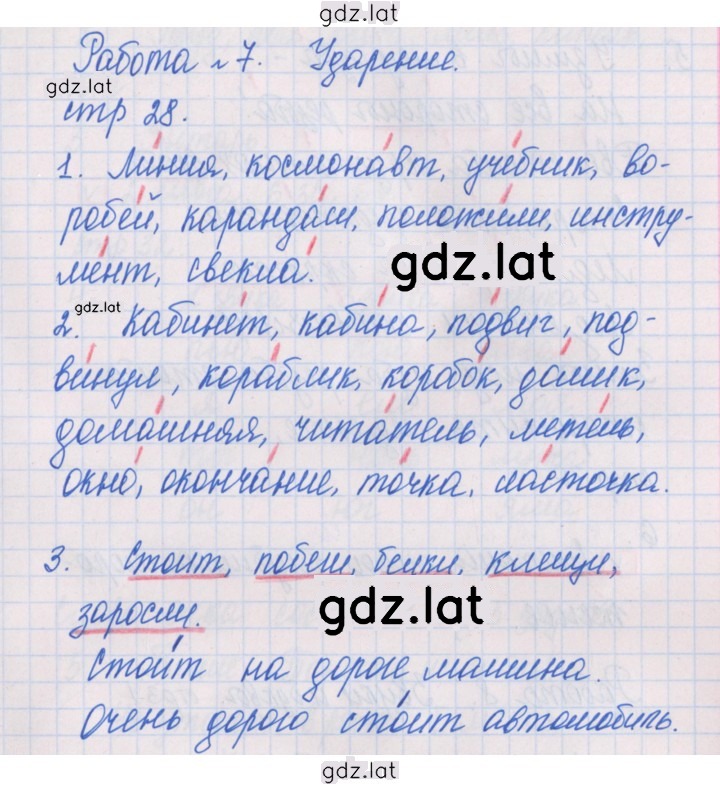 gdz.lat
Работа № 7. Ударение.
gdz.lat
стр 28.
1. Ли́ния, космона́вт, уче́бник, во-
робе́й, каранда́ш, положи́ли, инстру-
ме́нт, свекла́.
gdz.lat
gdz.lat
2. Кабине́т, каби́на, по́двиг, под-
ви́нул, кора́блик, коробо́к, до́мик,
дома́шняя, чита́тель, мете́ль,
окно́, оконча́ние, то́чка, ла́сточка.
3. Стоит, побеги, белки, клещи,
заросли.
gdz.lat
Стои́т на дороге машина.
Очень дорого сто́ит автомобиль.
gdz.lat